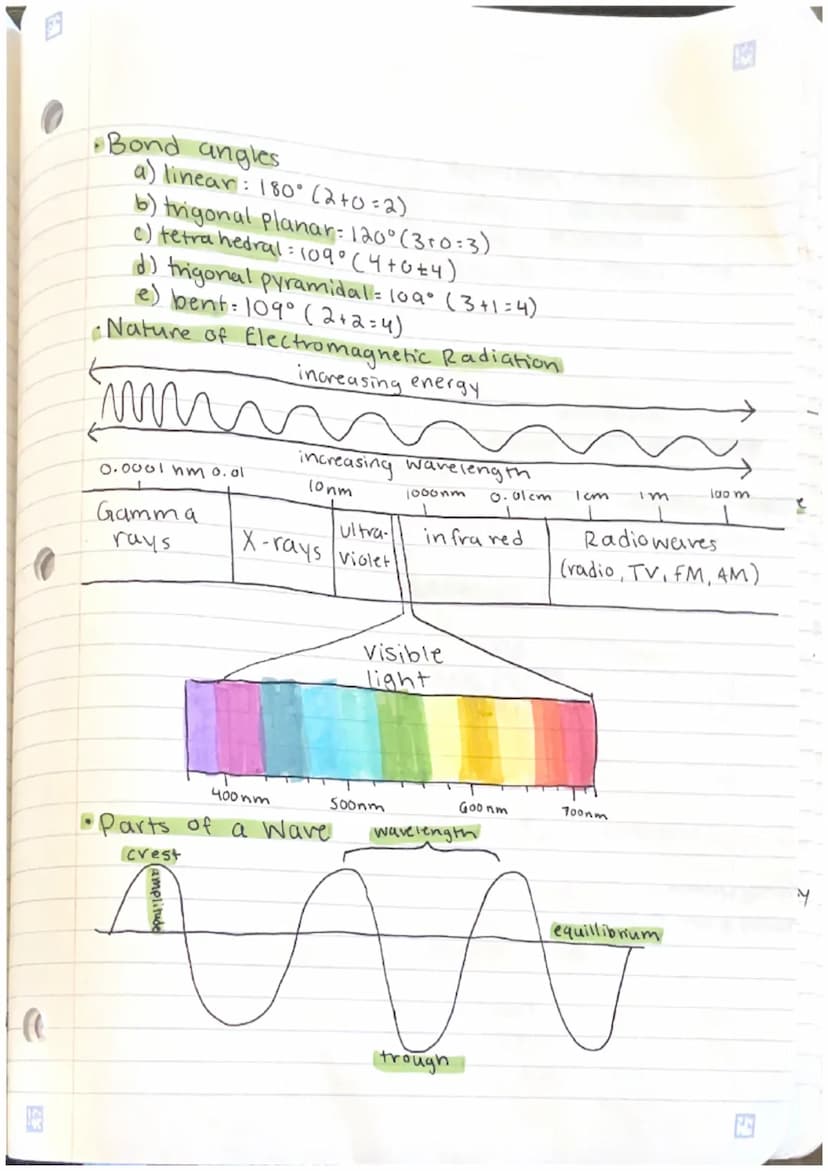 • Bond angles
a) linear: 180° (2+0=2)
b) trigonal planar= 120° (3+0=3)
c) tetrahedral=109° (4+0=4)
d) trigonal pyramidal=109° (3+1=4)
e) bent=109° (2+2=4)
• Nature of Electromagnetic Radiation
increasing energy
increasing wavelength
0.0001 nm 0.01 10nm 1000nm 0.01cm 1cm 1m 100m
Gamma rays X-rays ultra-violet infrared Radiowaves
(radio, TV, FM, AM)
visible
light
400nm 500nm 600nm 700nm
• Parts of a Wave wavelength
crest
amplitude
equillibrium
trough